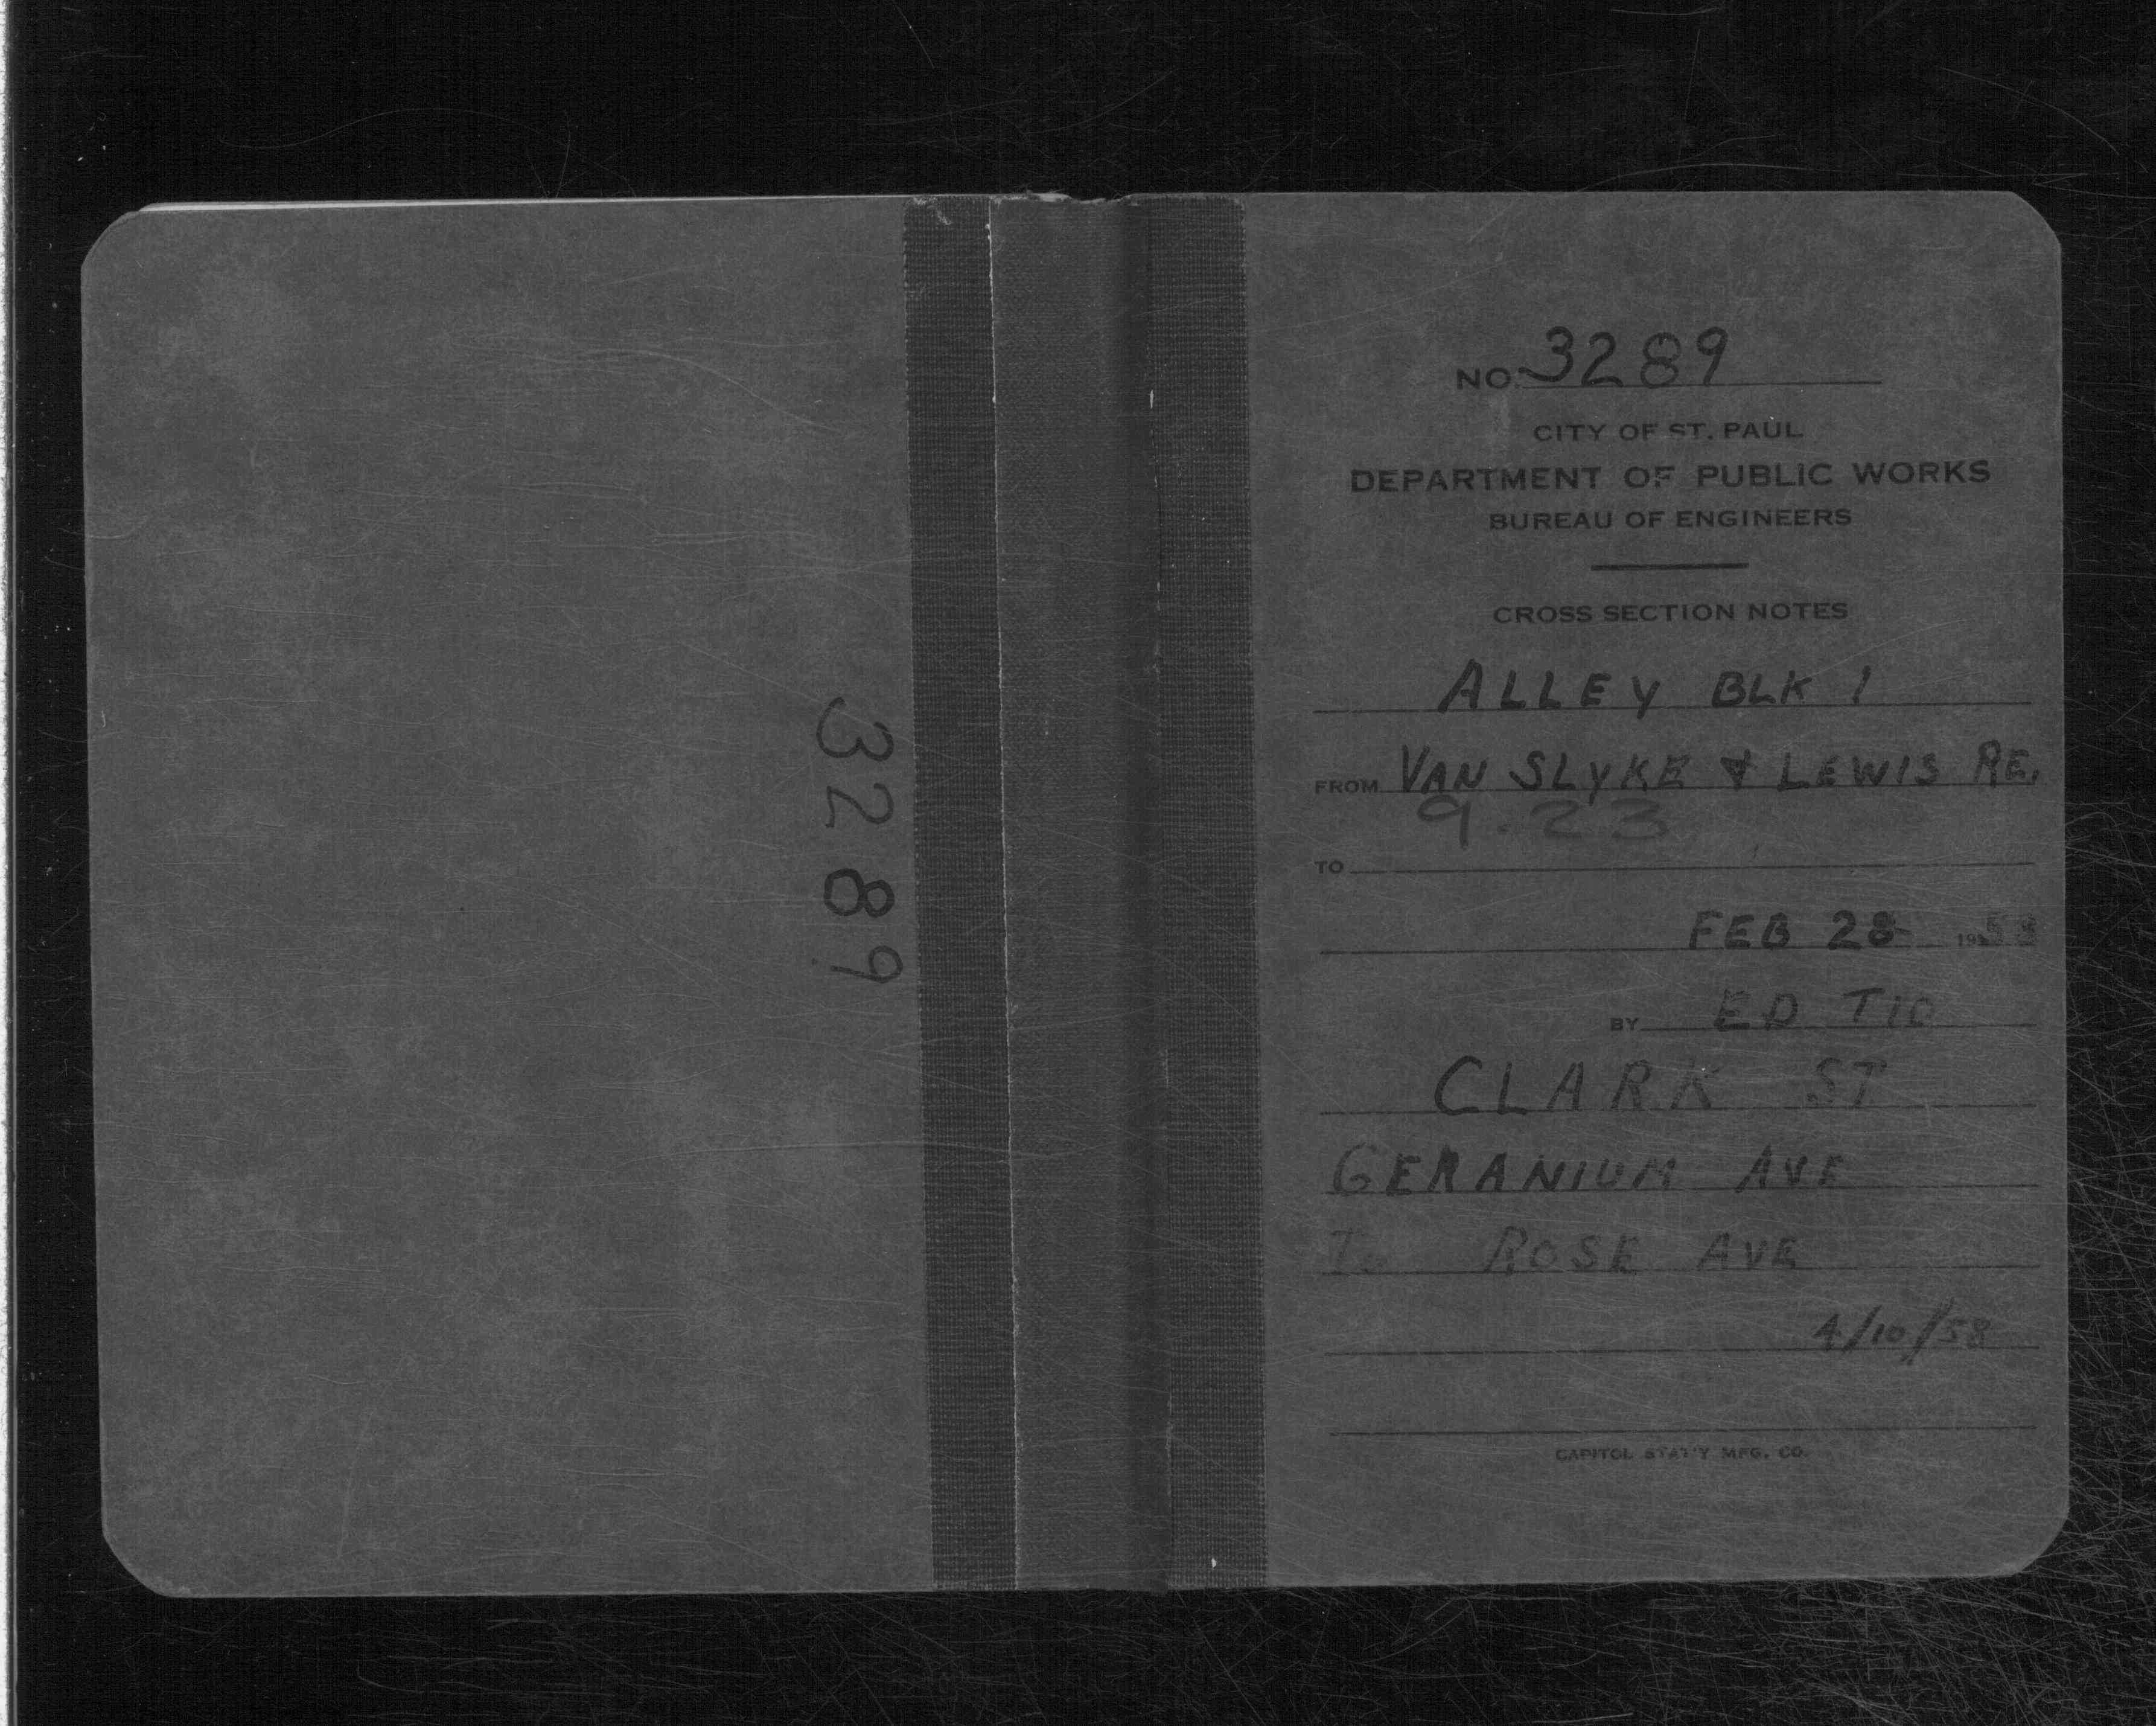 3289
NO. 3289
CITY OF ST. PAUL
DEPARTMENT OF PUBLIC WORKS
BUREAU OF ENGINEERS
CROSS SECTION NOTES
ALLEY BLK 1
FROM VAN SLYKE & LEWIS RE.
9.23
TO
FEB 28 1958
BY ED TIO
CLARK ST
GERANIUM AVE
To ROSE AVE
4/10/58
CAPITOL STAT'Y MFG. CO.